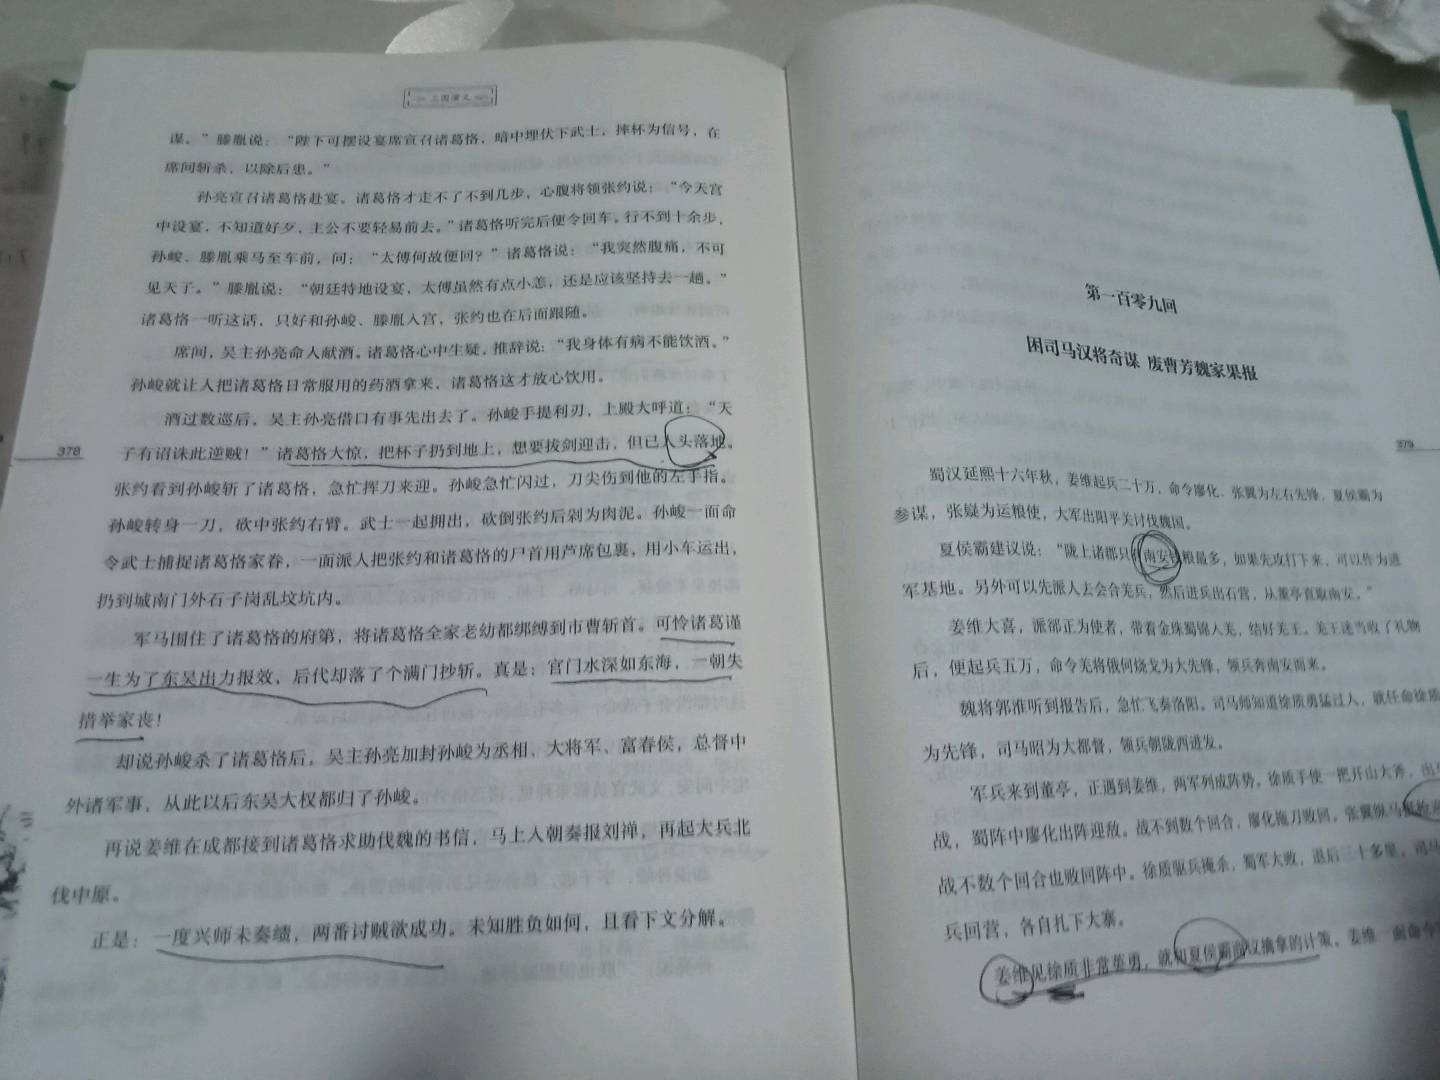 三国演义
谋。”滕胤说：“陛下可摆设宴席宣召诸葛恪，暗中埋伏下武士，摔杯为信号，在
席间斩杀，以除后患。”
孙亮宣召诸葛恪赴宴。诸葛恪才走不了不到几步，心腹将领张约说：“今天宫
中设宴，不知道好歹，主公不要轻易前去。”诸葛恪听完后便令回车。行不到十余步，
孙峻、滕胤乘马至车前，问：“太傅何故便回？”诸葛恪说：“我突然腹痛，不可
见天子。”滕胤说：“朝廷特地设宴，太傅虽然有点小恙，还是应该坚持去一趟。”
诸葛恪一听这话，只好和孙峻、滕胤入宫，张约也在后面跟随。
席间，吴主孙亮命人献酒。诸葛恪心中生疑，推辞说：“我身体有病不能饮酒。”
孙峻就让人把诸葛恪日常服用的药酒拿来，诸葛恪这才放心饮用。
酒过数巡后，吴主孙亮借口有事先出去了。孙峻手提利刃，上殿大呼道：“天
子有诏诛此逆贼！”诸葛恪大惊，把杯子扔到地上，想要拔剑迎击，但已人头落地。
378
张约看到孙峻斩了诸葛恪，急忙挥刀来迎。孙峻急忙闪过，刀尖伤到他的左手指。
孙峻转身一刀，砍中张约右臂。武士一起拥出，砍倒张约后剁为肉泥。孙峻一面命
令武士捕捉诸葛恪家眷，一面派人把张约和诸葛恪的尸首用芦席包裹，用小车运出，
扔到城南门外石子岗乱坟坑内。
军马围住了诸葛恪的府第，将诸葛恪全家老幼都绑缚到市曹斩首。可怜诸葛谨
一生为了东吴出力报效，后代却落了个满门抄斩。真是：官门水深如东海，一朝失
措举家丧！
却说孙峻杀了诸葛恪后，吴主孙亮加封孙峻为丞相、大将军、富春侯，总督中
外诸军事，从此以后东吴大权都归了孙峻。
再说姜维在成都接到诸葛恪求助伐魏的书信，马上入朝奏报刘禅，再起大兵北
伐中原。
正是：一度兴师未奏绩，两番讨贼欲成功。未知胜负如何，且看下文分解。
第一百零九回
困司马汉将奇谋 废曹芳魏家果报
379
蜀汉延熙十六年秋，姜维起兵二十万，命令廖化、张翼为左右先锋，夏侯霸为
参谋，张嶷为运粮使，大军出阳平关讨伐魏国。
夏侯霸建议说：“陇上诸郡只有南安钱粮最多，如果先攻打下来，可以作为进
军基地。另外可以先派人去会合羌兵，然后进兵出石营，从董亭直取南安。”
姜维大喜，派郤正为使者，带着金珠蜀锦入羌，结好羌王。羌王迷当收了礼物
后，便起兵五万，命令羌将俄何烧戈为大先锋，领兵奔南安而来。
魏将郭淮听到报告后，急忙飞奏洛阳。司马师知道徐质勇猛过人，就任命徐质
为先锋，司马昭为大都督，领兵朝陇西进发。
军兵来到董亭，正遇到姜维，两军列成阵势。徐质手使一把开山大斧，出
战，蜀阵中廖化出阵迎敌。战不到数个回合，廖化拖刀败回。张翼纵马
战不数个回合也败回阵中。徐质驱兵掩杀，蜀军大败，退后三十多里。司马
兵回营，各自扎下大寨。
姜维见徐质非常英勇，就和夏侯霸商议擒拿的计策。姜维一面命令